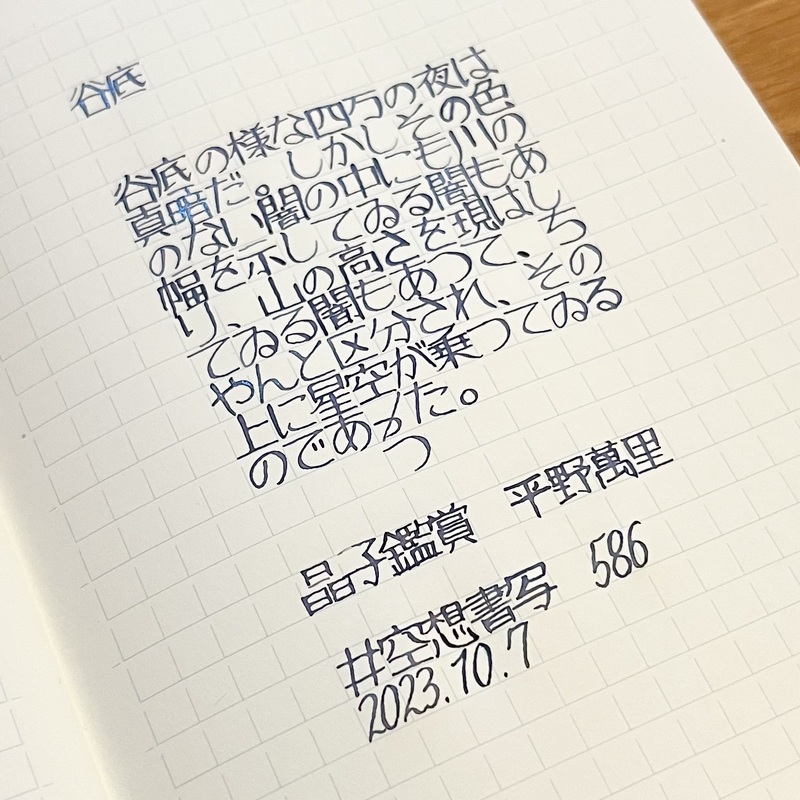 谷底
谷底の様な四万の夜は
真暗だ。しかしその色
のない闇の中にも川の
幅を示してゐる闇もあ
り、山の高さを現はし
てゐる闇もあつて、ち
やんと区分され、その
上に星空が乗つてゐる
のであた。
つ
晶子鑑賞 平野萬里
#空想書写 586
2023.10.7